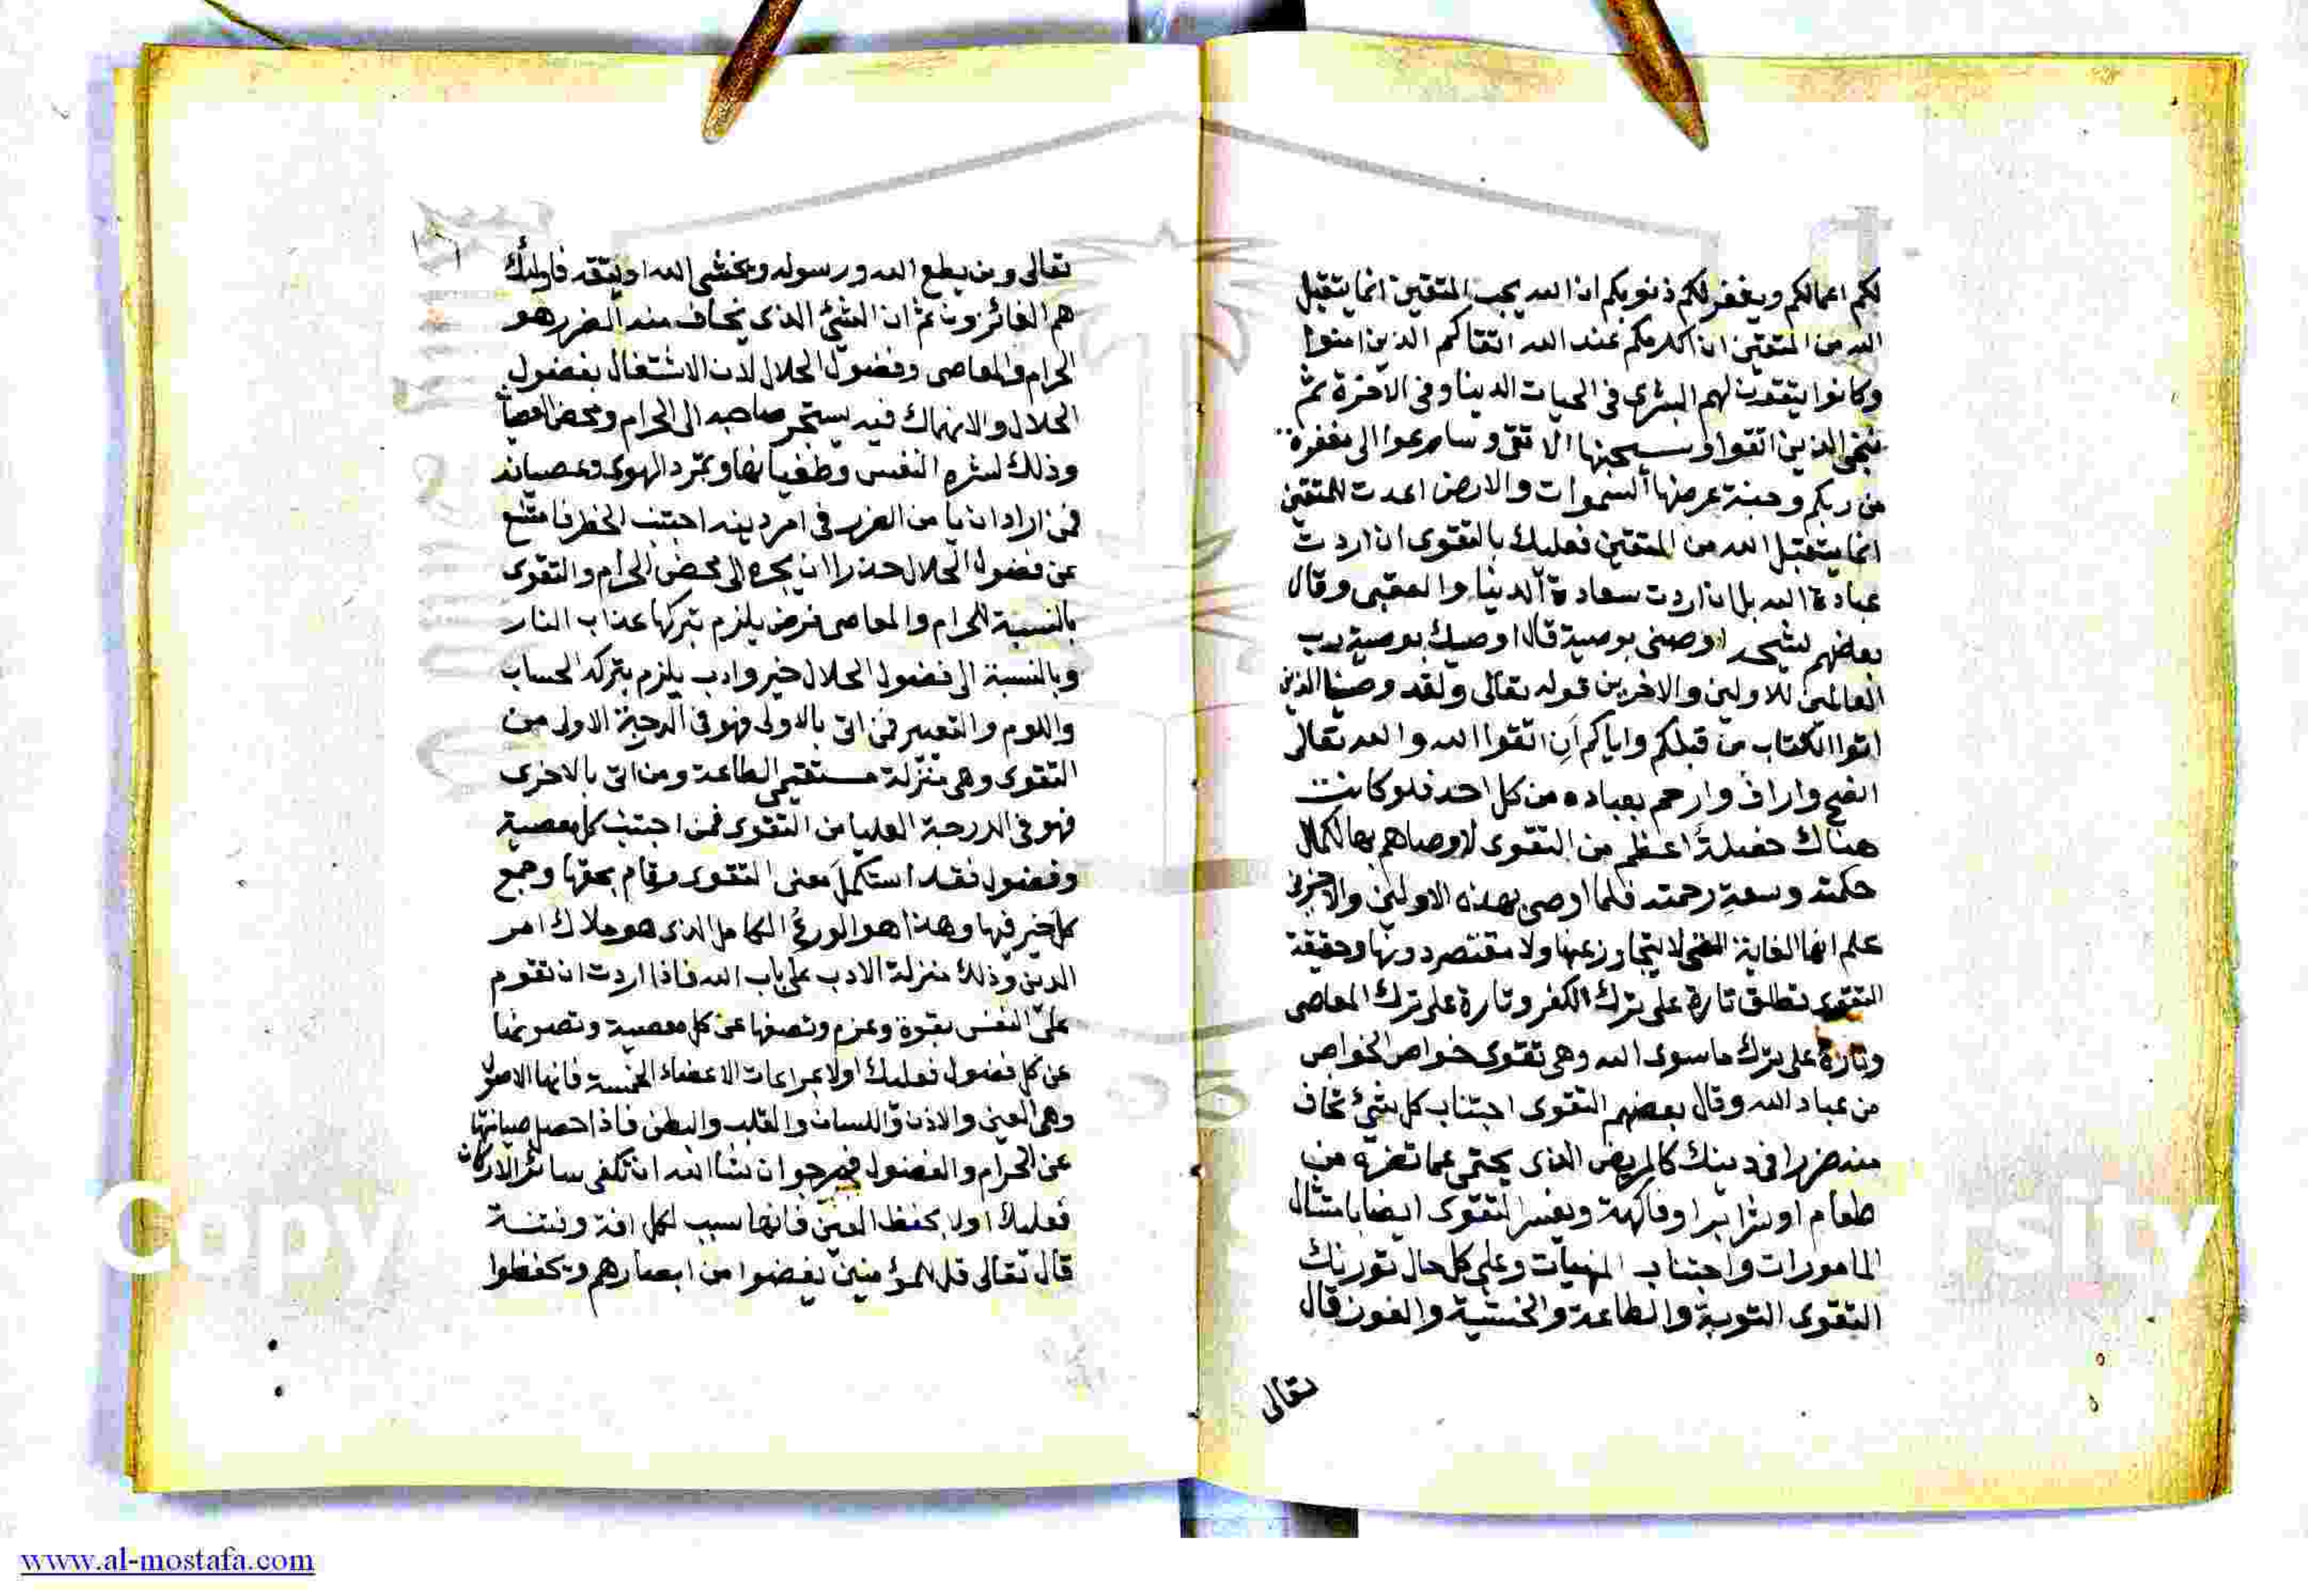 لكم اعمالكم ويغفر لكم ذنوبكم ان الله يحب المتقين انما يتقبل
الله من المتقين ان اكرمكم عند الله اتقاكم الذين امنوا
وكانوا يتقون لهم البشرى فى الحيات الدنيا وفى الآخرة ثم
ننجى الذين اتقوا وسيجنبها الاتقى وسارعوا الى مغفرة
من ربكم وجنة عرضها السموات والارض اعدت للمتقين
انما يتقبل الله من المتقين فعليك بالتقوى ان اردت
عبادة الله بل ان اردت سعادة الدنيا والعقبى وقال
بعضهم لشيخه اوصنى بوصية قال اوصيك بوصية رب
العالمين للاولين والاخرين قوله تعالى ولقد وصينا الذين
اتوا الكتاب من قبلكم واياكم اَنِ اتقوا الله والله تعالى
انصح واراف وارحم بعباده من كل احد فلو كانت
هناك خصلة اعظم من التقوى لاوصاهم بها لكمال
حكمته وسعة رحمته فلما اوصى بهذه الاولين والاخرين
علم انها الغاية التى لا يتجاوز عنها ولا مقتصر دونها وحقيقة
التقوى تطلق تارة على ترك الكفر وتارة على ترك المعاصى
وتارة على ترك ما سوى الله وهى تقوى خواص الخواص
من عباد الله وقال بعضهم التقوى اجتناب كل شئ تخاف
منه ضررا فى دينك كالمريض الذى يحتمى عما تضره من
طعام او شراب او فاكهة ويفسر التقوى ايضا بامتثال
المامورات واجتناب المنهيات وعلى كل حال تورثك
التقوى التوبة والطاعة والخشية والفوز قال
تعالى
تعالى ومن يطع الله ورسوله ويخشى الله ويتقه فاولئك
هم الفائزون ثم ان الشئ الذى يخاف منه الضرر هو
الحرام والمعاصى وفضول الحلال لان الاشتغال بفضول
الحلال والانهماك فيه يستجر صاحبه الى الحرام ومحض العصيان
وذلك لشره النفس وطغيانها وتمرد الهوى وعصيانه
فمن اراد ان يامن الضرر فى امر دينه اجتنب الخطر فامتنع
عن فضول الحلال حذرا ان يجره الى محض الحرام والتقوى
بالنسبة للحرام والمعاصى فرض يلزم بتركها عذاب النار
وبالنسبة الى فضول الحلال خير وادب يلزم بتركه الحساب
واللوم والتعيير فمن اتى بالاولى فهو فى الدرجة الاولى من
التقوى وهى منزلة مستقيمى الطاعة ومن اتى بالاخرى
فهو فى الدرجة العليا من التقوى فمن اجتنب كل معصية
وفضول فقد استكمل معنى التقوى وقام بحقها وجمع
كل خير فيها وهذا هو الورع الكامل الذى هو ملاك امر
الدين وذلك منزلة الادب على باب الله فاذا اردت ان تقوم
على النفس بقوة وعزم وتصفها عن كل معصية وتصونها
عن كل فضول فعليك اولا بمراعات الاعضاء الخمسة فانها الاصول
وهى العين والاذن واللسان والقلب والبطن فاذا حصل صيانتها
عن الحرام والفضول فيرجو ان شاالله ان تكفى سائر الاركان
فعليك اولا بحفظ العين فانها سبب لكل افة وفتنة
قال تعالى قل للمؤمنين يغضوا من ابصارهم ويحفظوا
Copy
rsity
www.al-mostafa.com